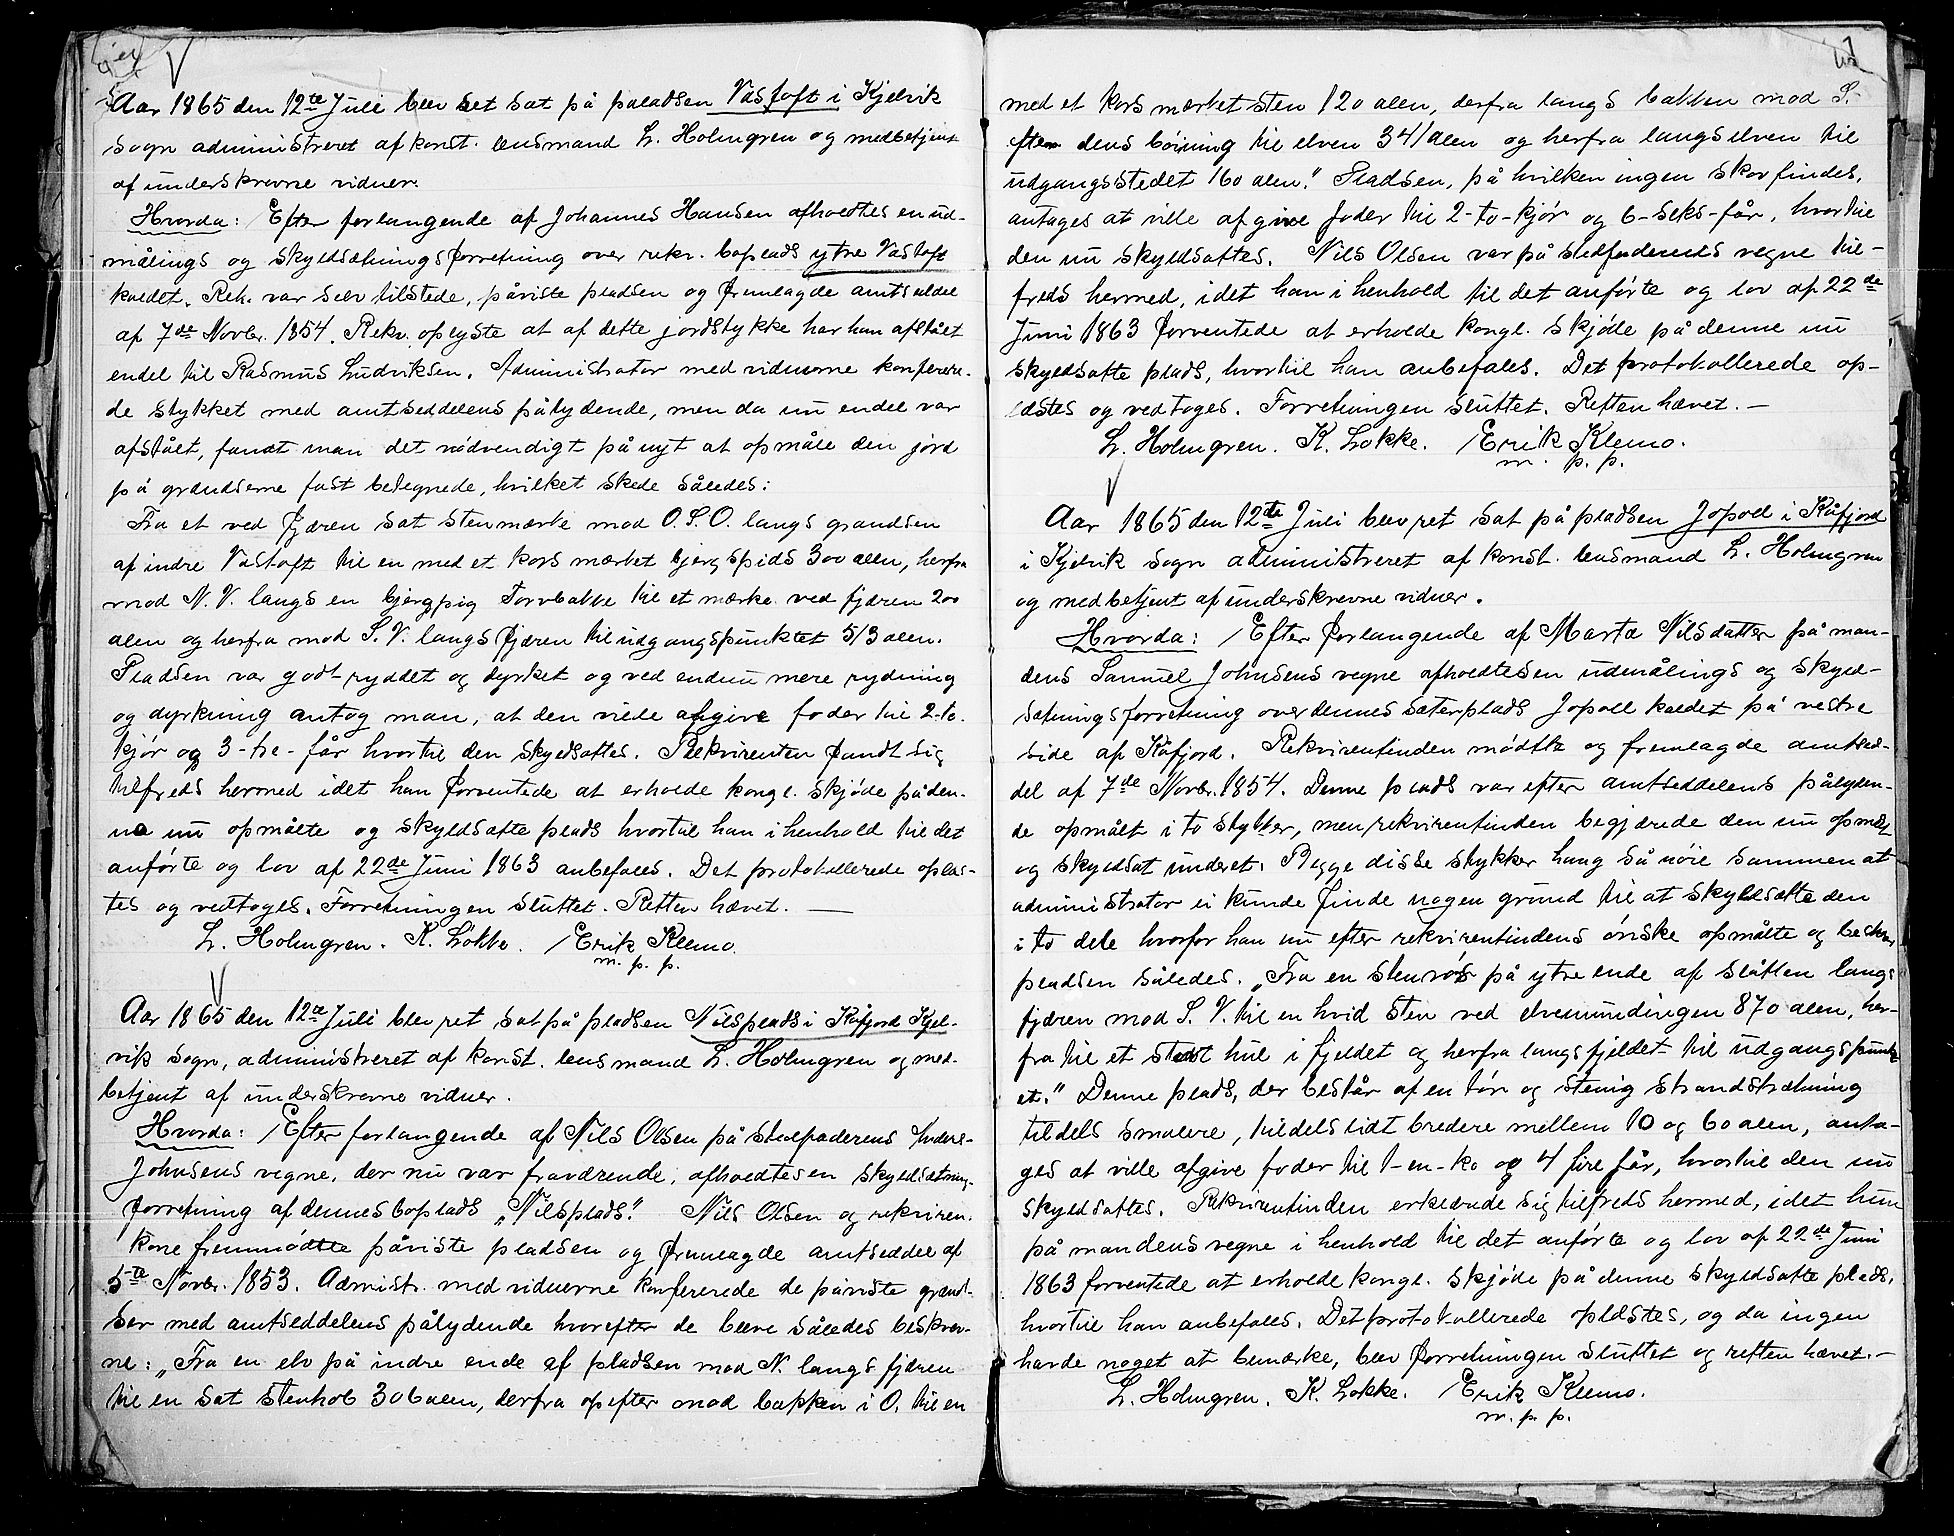 Aar 1865 den 12te Juli blev ret sat på paladsen Vástoft i Kjelvik
sogn administreret af konst. lensmand L. Holmgren og medbetjent
af underskrevne vidner.
Hvorda: Efter forlangende af Johannes Hansen afholdtes en ud-
målings og skyldsætningsforretning over rekv. boplads ytre Vástoft
kaldet. Rek. var selv tilstede, påviste pladsen og fremlagde amtsedel
af 7de Novbr. 1854. Rekv. oplyste at af dette jordstykke har han afstået
endel til Rasmus Ludviksen. Administrator med vidnerne konferere-
de stykket med amtseddelens pålydende, men da nu endel var
afstået, fandt man det nödvendigt på nyt at opmåle den jord
på grændserne fast betegnede, hvilket skede således:
Fra et ved fjæren sat stenmærke mod O.S.O. langs grændsen
af indre Vástoft til en med et kors mærket bjergspids 300 alen, herfra
mod N.V. langs en bjergpig Torvbakke til et mærke ved fjæren 200
alen og herfra mod S.V. langs fjæren til udgangspunktet 513 alen.
Pladsen var godt ryddet og dyrket og ved endnu mere rydning
og dyrkning antog man, at den vilde afgive foder til 2-to-
kjör og 3-tre-får hvortil den skyldsattes. Rekvirenten fandt sig
tilfreds hermed idet han forventede at erholde kongl. skjöde på den-
ne nu opmålte og skyldsatte plads hvortil han i henhold til det
anförte og lov af 22de Juni 1863 anbefales. Det protokollerede oplæs-
tes og vedtoges. Forretningen sluttet. Retten hævet. —
L. Holmgren. K. Lokke. Erik Klemo.
m. p. p.
Aar 1865 den 12te Juli blev ret sat på pladsen Nilsplads i Kåfjord Kjel-
vik sogn, administreret af konst. lensmand L. Holmgren og med-
betjent af underskrevne vidner.
Hvorda: Efter forlangende af Nils Olsen på stedfaderens Anders
Johnsens vegne, der nu var fraværende, afholdtes en skyldsætnings-
forretning af dennes boplads „Nilsplads". Nils Olsen og rekviren.
kone fremmödte påviste pladsen og fremlagde amtseddel af
5te Novbr. 1853. Admistr. med vidnerne konfererede de påviste grænd-
ser med amtseddelens pålydende hvorefter de bleve således beskrev-
ne: „Fra en elv på indre ende af pladsen mod N. langs fjæren
til en sat stenhob 306 alen, derfra opefter mod bakken i O. til en
med et kors mærket sten 120 alen, derfra langs bakken mod S.
efter dens böining til elven 341 alen og herfra langs elven til
udgangsstedet 160 alen." Pladsen, på hvilken ingen skov findes,
antages at ville afgive foder til 2-to-kjör og 6-seks-får, hvortil
den nu skyldsattes. Nils Olsen var på stedfaderens vegne til-
freds hermed, idet han i henhold til det anförte og lov af 22de
Juni 1863 forventede at erholde kongl. skjöde på denne nu
skyldsatte plads, hvortil han anbefales. Det protokollerede op-
læstes og vedtoges. Forretningen sluttet. Retten hævet. —
L. Holmgren. K. Lokke. Erik Klemo.
m. p. p.
Aar 1865 den 12te Juli blev ret sat på pladsen Jopoll i Kåfjord
i Kjelvik sogn administreret af konst. lensmand L. Holmgren
og medbetjent af underskrevne vidner.
Hvorda: Efter forlangende af Marta Nilsdatter på man-
dens Samuel Johnsens vegne afholdtes en udmålings og skyld-
sætningsforretning over dennes sæterplads Jopoll kaldet på vestre
side af Kåfjord. Rekvirentinden mödte og fremlagde amtsed-
del af 7de Novbr. 1854. Denne plads var efter amtseddelens pålyden-
de opmålt i to stykker, men rekvirentinden begjærede den nu opmålt
og skyldsat under et. Begge disse stykker hang så nöie sammen at
administrator ei kunde finde nogen grund til at skyldsætte den
i to dele hvorfor han nu efter rekvirentindens önske opmålte og beskrev
pladsen således. „Fra en stenrös på ytre ende af slåtten langs
fjæren mod S.V. til en hvid sten ved elvemundingen 870 alen, her-
fra til et stort hul i fjeldet og herfra langs fjeldet til udgangspunkt-
et." Denne plads, der består af en tör og stenig strandstrækning
tildels smalere, tildels lidt bredere mellem 10 og 60 alen, anta-
ges at ville afgive foder til 1-en-ko og 4 fire får, hvortil den nu
skyldsattes. Rekvirentinden erklærede sig tilfreds hermed, idet hun
på mandens vegne i henhold til det anförte og lov af 22de Juni
1863 forventede at erholde kongl. skjöde på denne skyldsatte plads,
hvortil han anbefales. Det protokollerede oplæstes, og da ingen
havde noget at bemærke, blev forretningen sluttet og retten hævet. —
L. Holmgren. K. Lokke. Erik Klemo.
m. p. p.